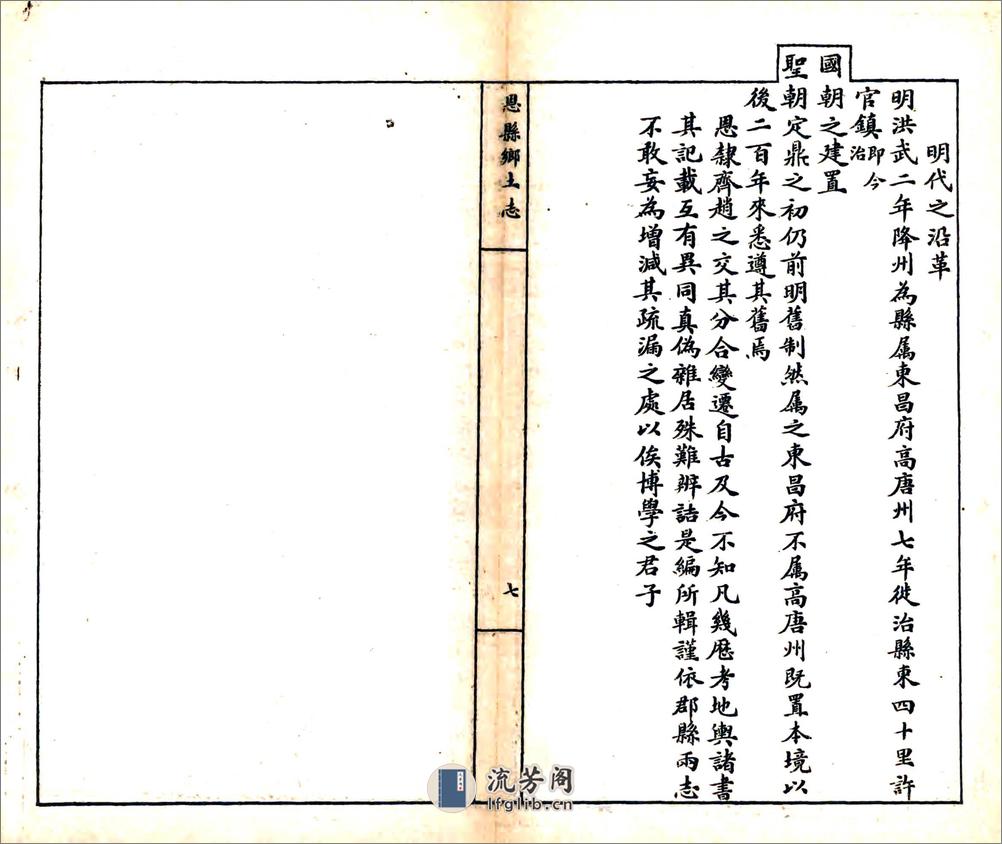 明代之沿革
明洪武二年降州為縣属東昌府高唐州七年徙治縣東四十里許
官鎮即今治
國朝之建置
聖朝定鼎之初仍前明舊制然属之東昌府不属高唐州既置本境以
後二百年來悉遵其舊焉
恩隸齊趙之交其分合變遷自古及今不知凡幾歴考地輿諸書
其記載互有異同真偽雜居殊難辨詰是編所輯謹依郡縣兩志
不敢妄為增減其疏漏之處以俟博學之君子
恩縣鄉土志
七
流芳阁
lfglib.cn